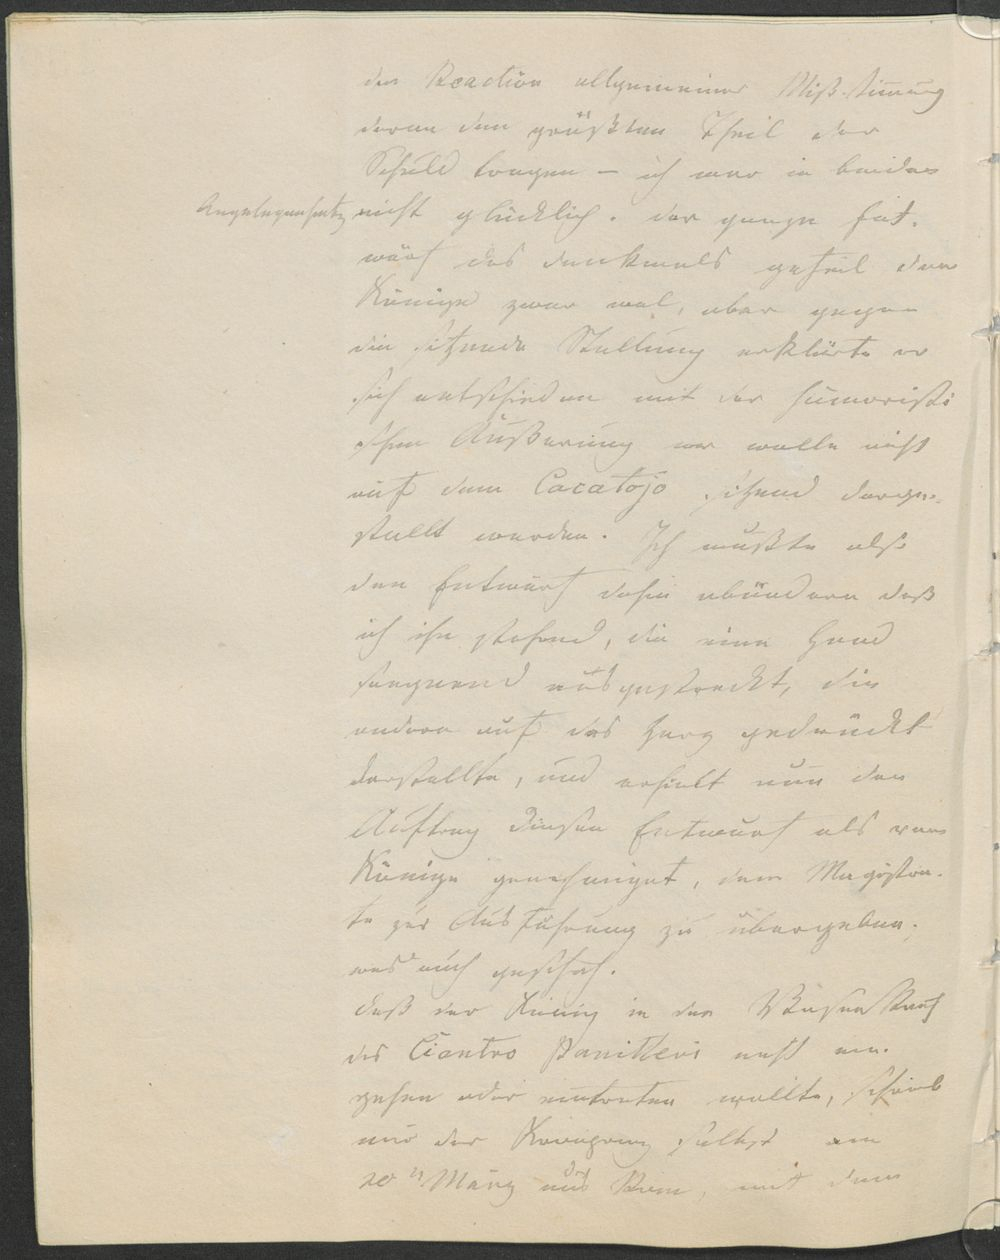 der Reaction allgemeiner Miß-Stimmung
daran den größten Theil der
Schuld tragen – ich war in beiden
Angelegenheiten nicht glücklich. Der ganze Ent-
wurf des Denkmals gefiel dem
Könige zwar wol, aber gegen
die sitzende Stellung erklärte er
sich entschieden mit der humoristi-
schen Äußerung er wolle nicht
auf dem Cacatojo sitzend darge-
stellt werden. Ich mußte also
den Entwurf dahin abändern daß
ich ihn stehend, die eine Hand
segnend ausgestreckt, die
andere auf das Herz gedrückt
darstellte, und erhielt nun den
Auftrag diesen Entwurf als vom
Könige genehmigt, dem Magistra-
te zur Ausführung zu übergeben,
was auch geschah.
Daß der König in den
des nicht ein-
gehen oder eintreten wollte, schrieb
mir der Kronprinz selbst am
20 n März aus Rom, mit dem